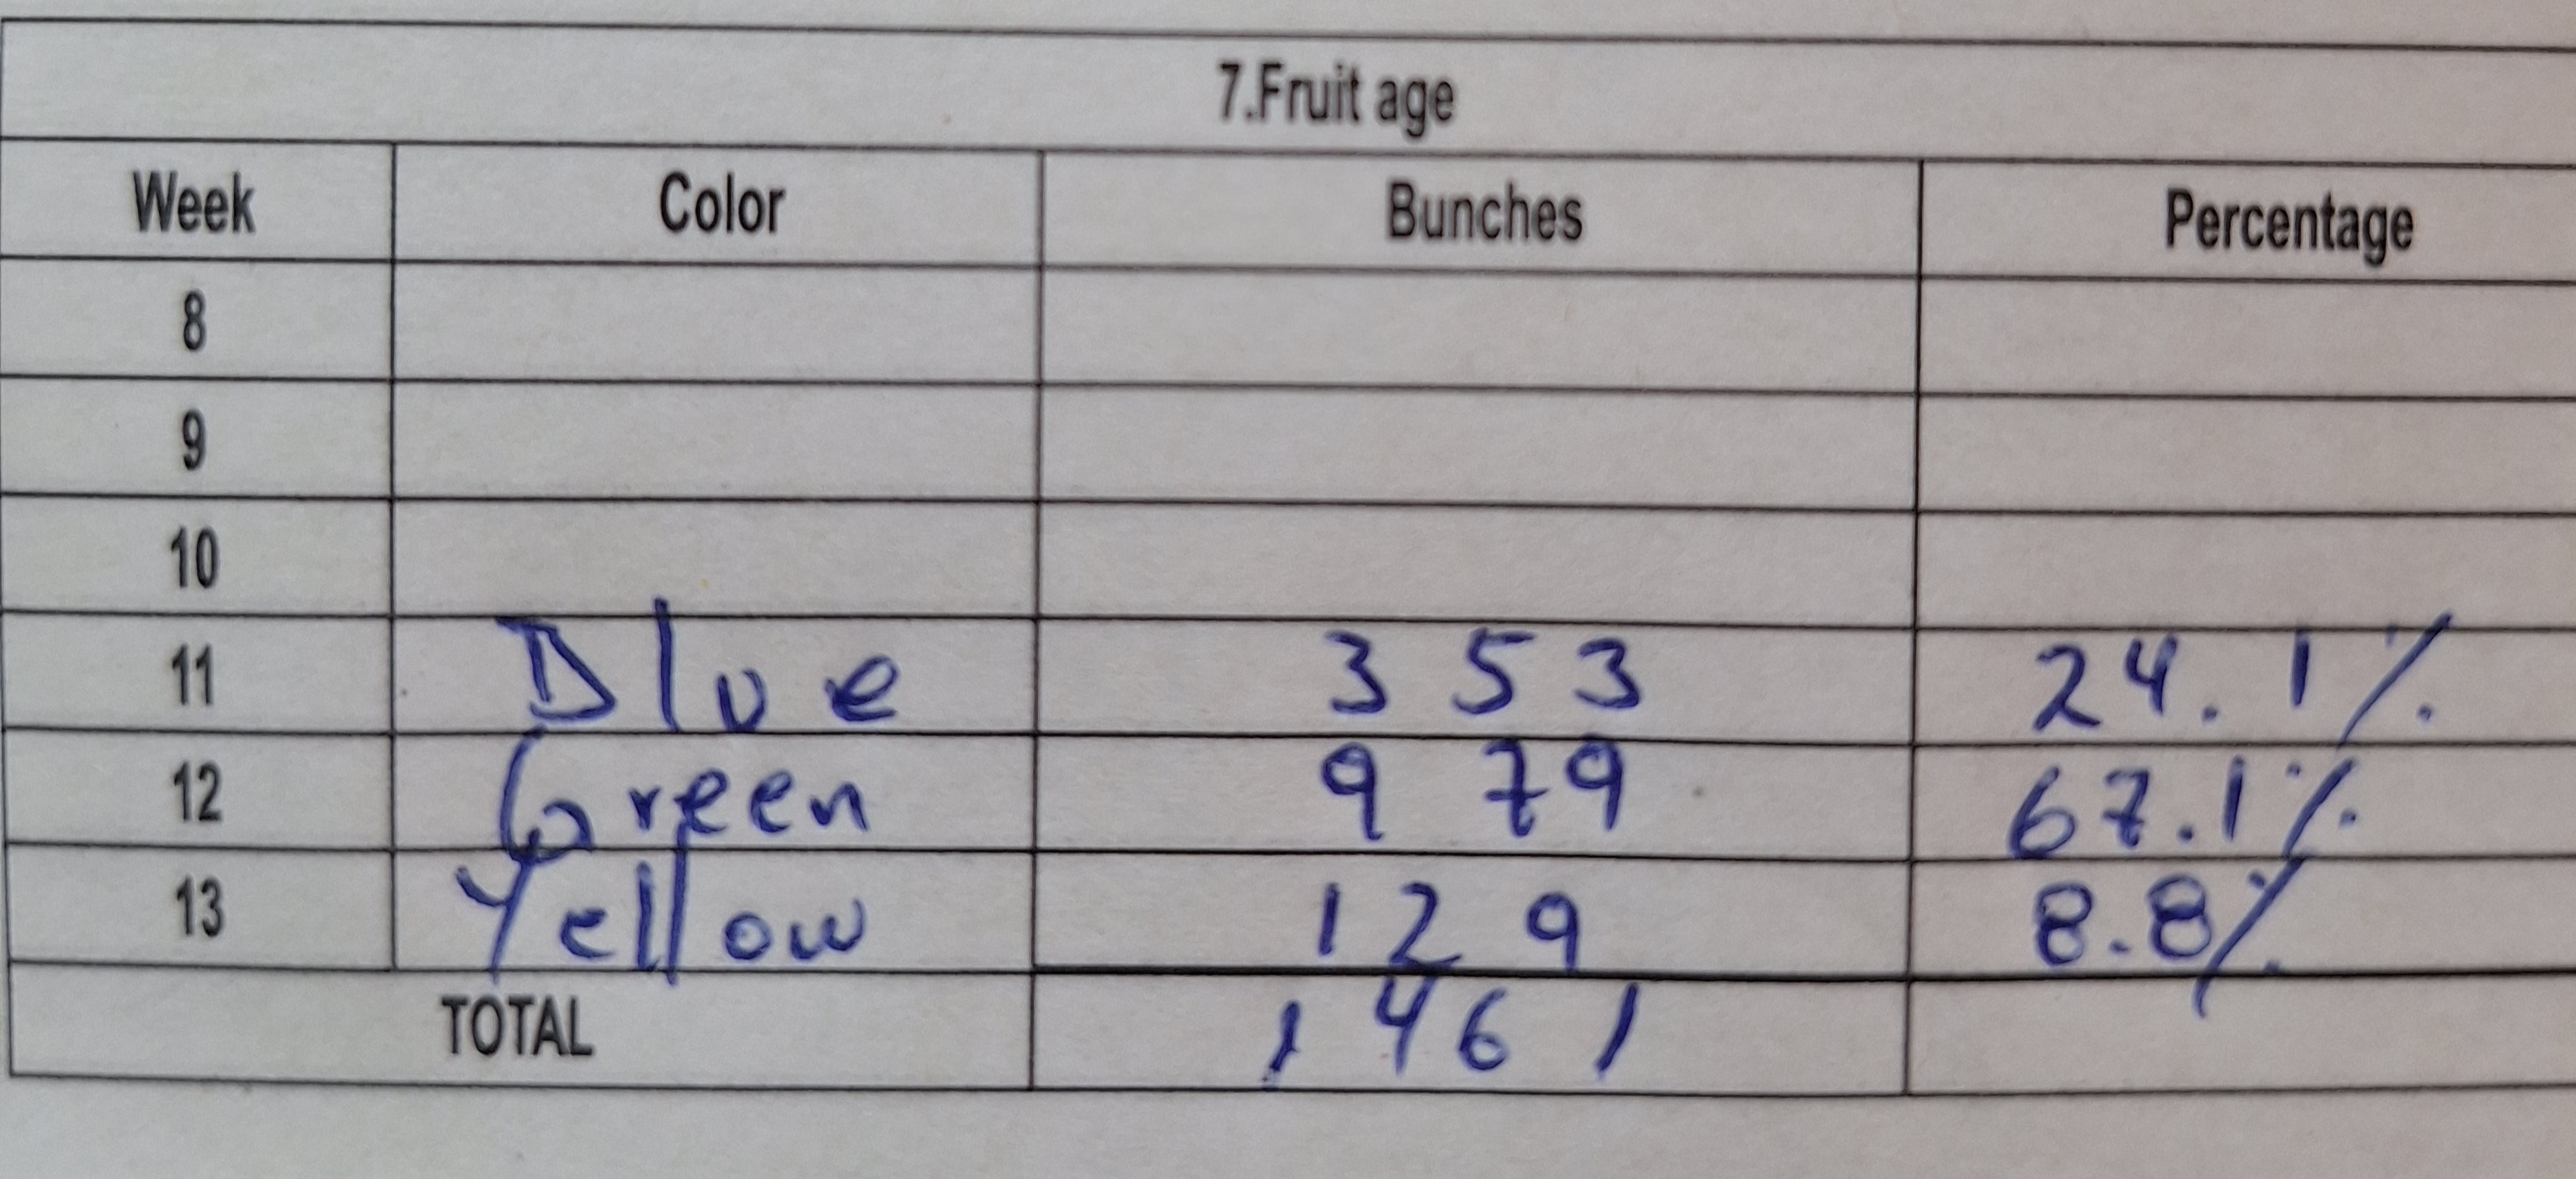 7.Fruit age
Week Color Bunches Percentage
8
9
10
11 Blue 353 24.1%
12 Green 979 67.1%
13 Yellow 129 8.8%
TOTAL 1461